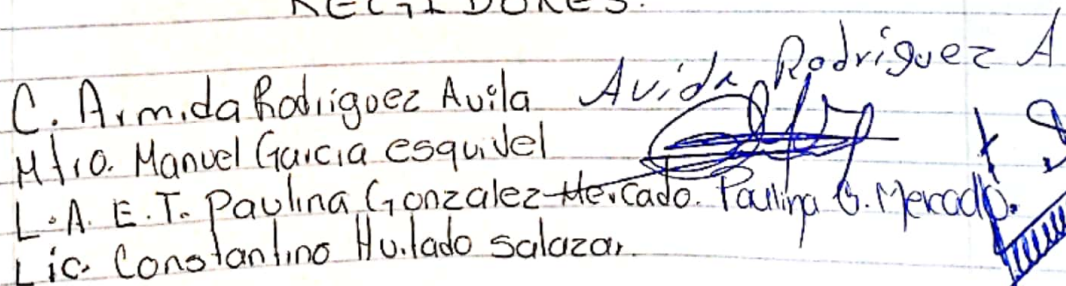 REGIDORES.
C. Armida Rodriguez Avila Avida Rodríguez A
Mtro. Manuel Garcia esquivel
L.A.E.T. Paulina Gonzalez Mercado. Paulina G. Mercado.
Lic. Constantino Hurtado salazar.